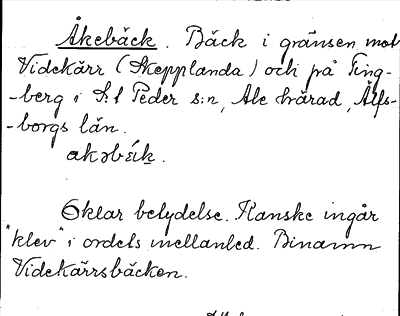 Åkebäck. Bäck i gränsen mot
Videkärr (Skepplanda) och på Ting-
-berg i S:t Peder s:n, Ale härad, Älfs-
-borgs län.
akəbɛ́ik.
Oklar betydelse. Kanske ingår
"klev" i ordets mellanled. Binamn
Videkärrsbäcken.